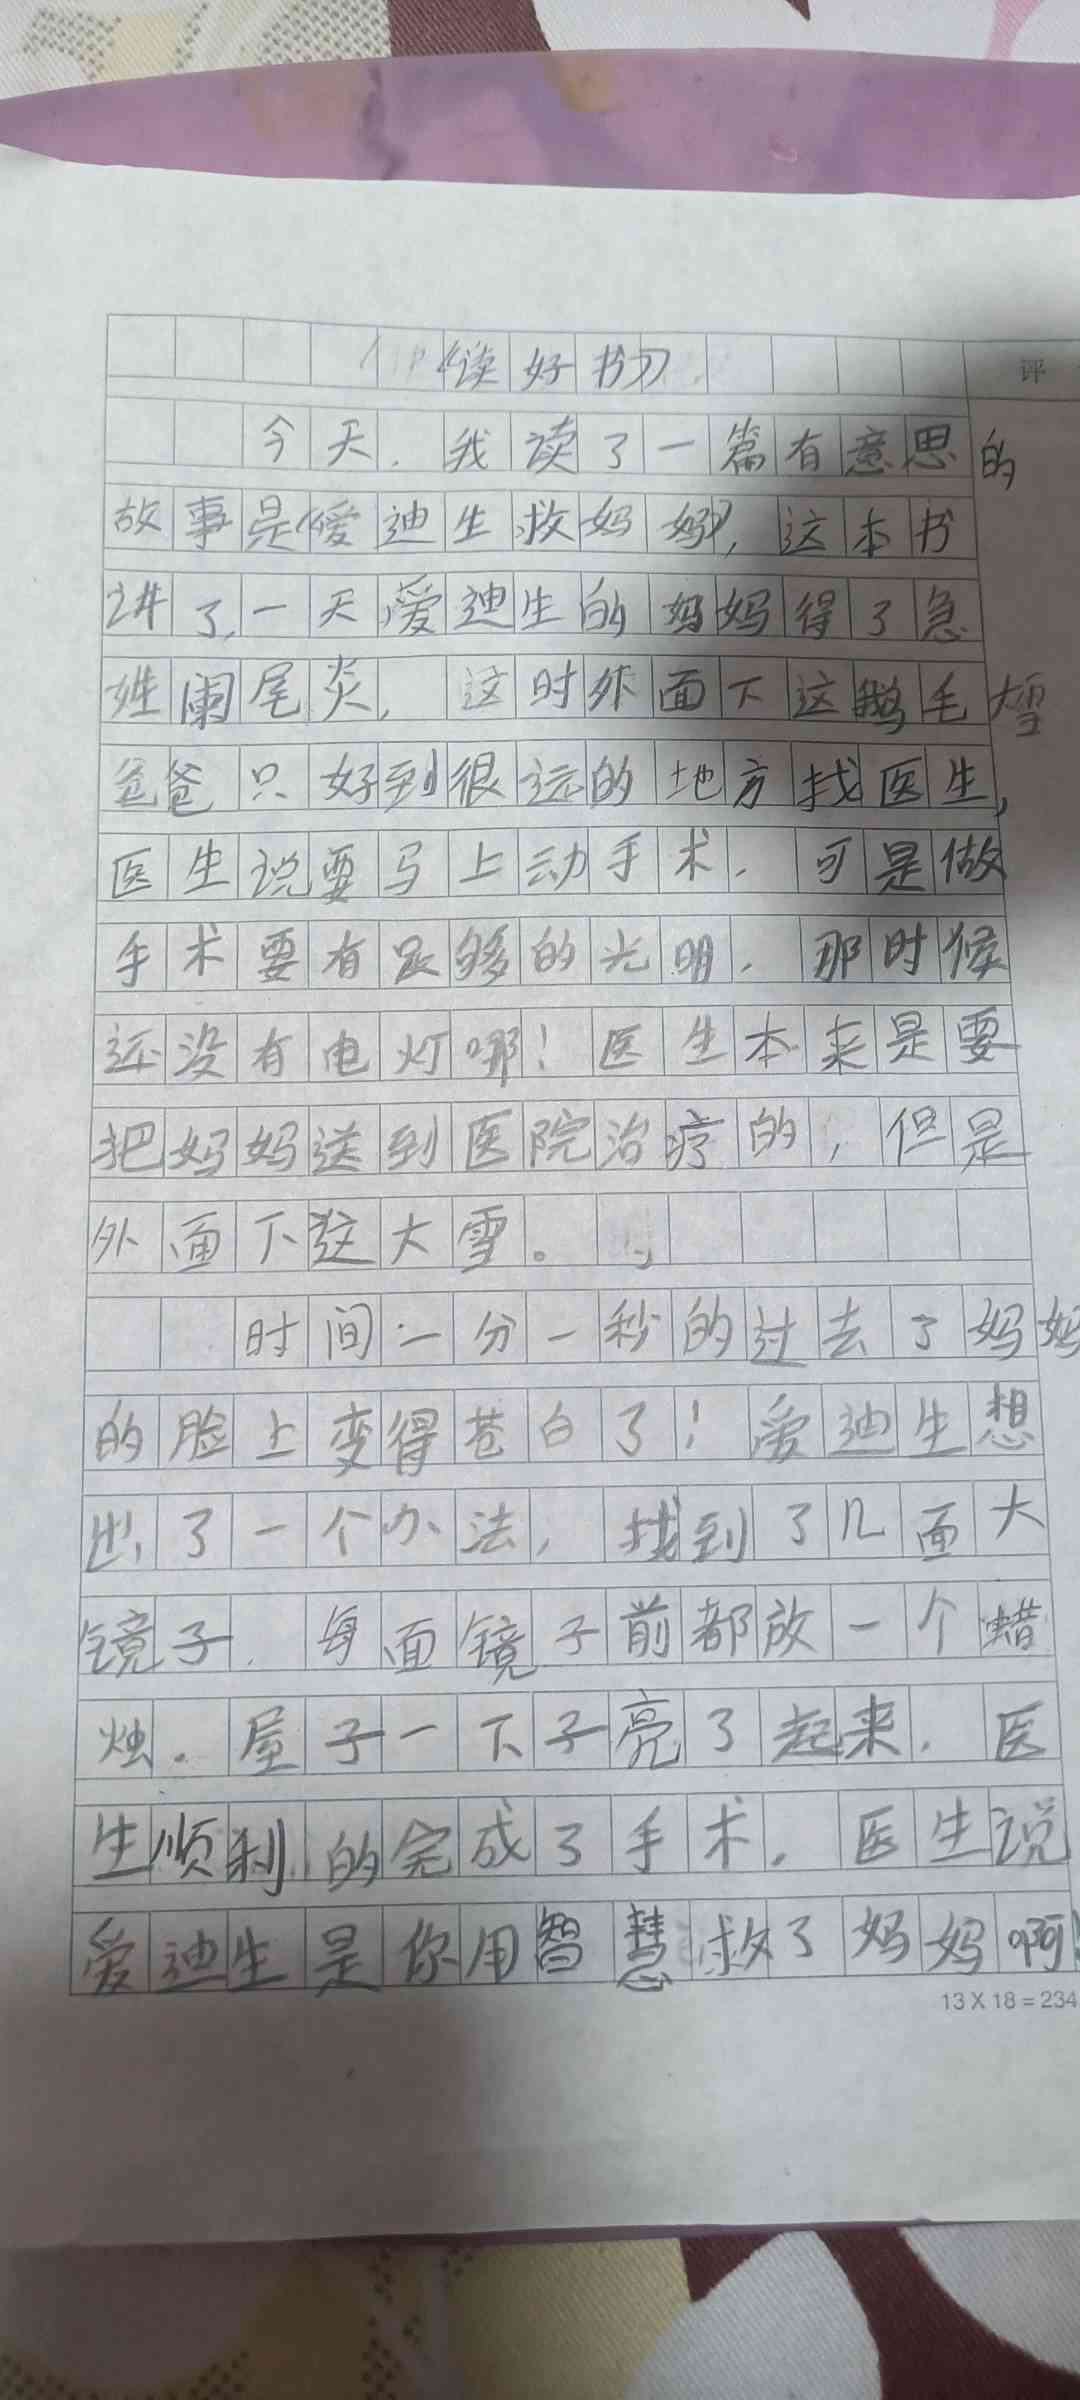 《读好书》
评
今天，我读了一篇有意思的
故事是《爱迪生救妈妈》，这本书
讲了，一天，爱迪生的妈妈得了急
姓阑尾炎，这时外面下这鹅毛大雪
爸爸只好到很远的地方找医生，
医生说要马上动手术．可是做
手术要有足够的光明．那时候
还没有电灯哪！医生本来是要
把妈妈送到医院治疗的，但是
外面下这大雪。
时间一分一秒的过去了妈妈
的脸上变得苍白了！爱迪生想
出了一个办法，找到了几面大
镜子．每面镜子前都放一个蜡
烛．屋子一下子亮了起来．医
生顺利的完成了手术．医生说
爱迪生是你用智慧救了妈妈啊！
13 X 18 = 234